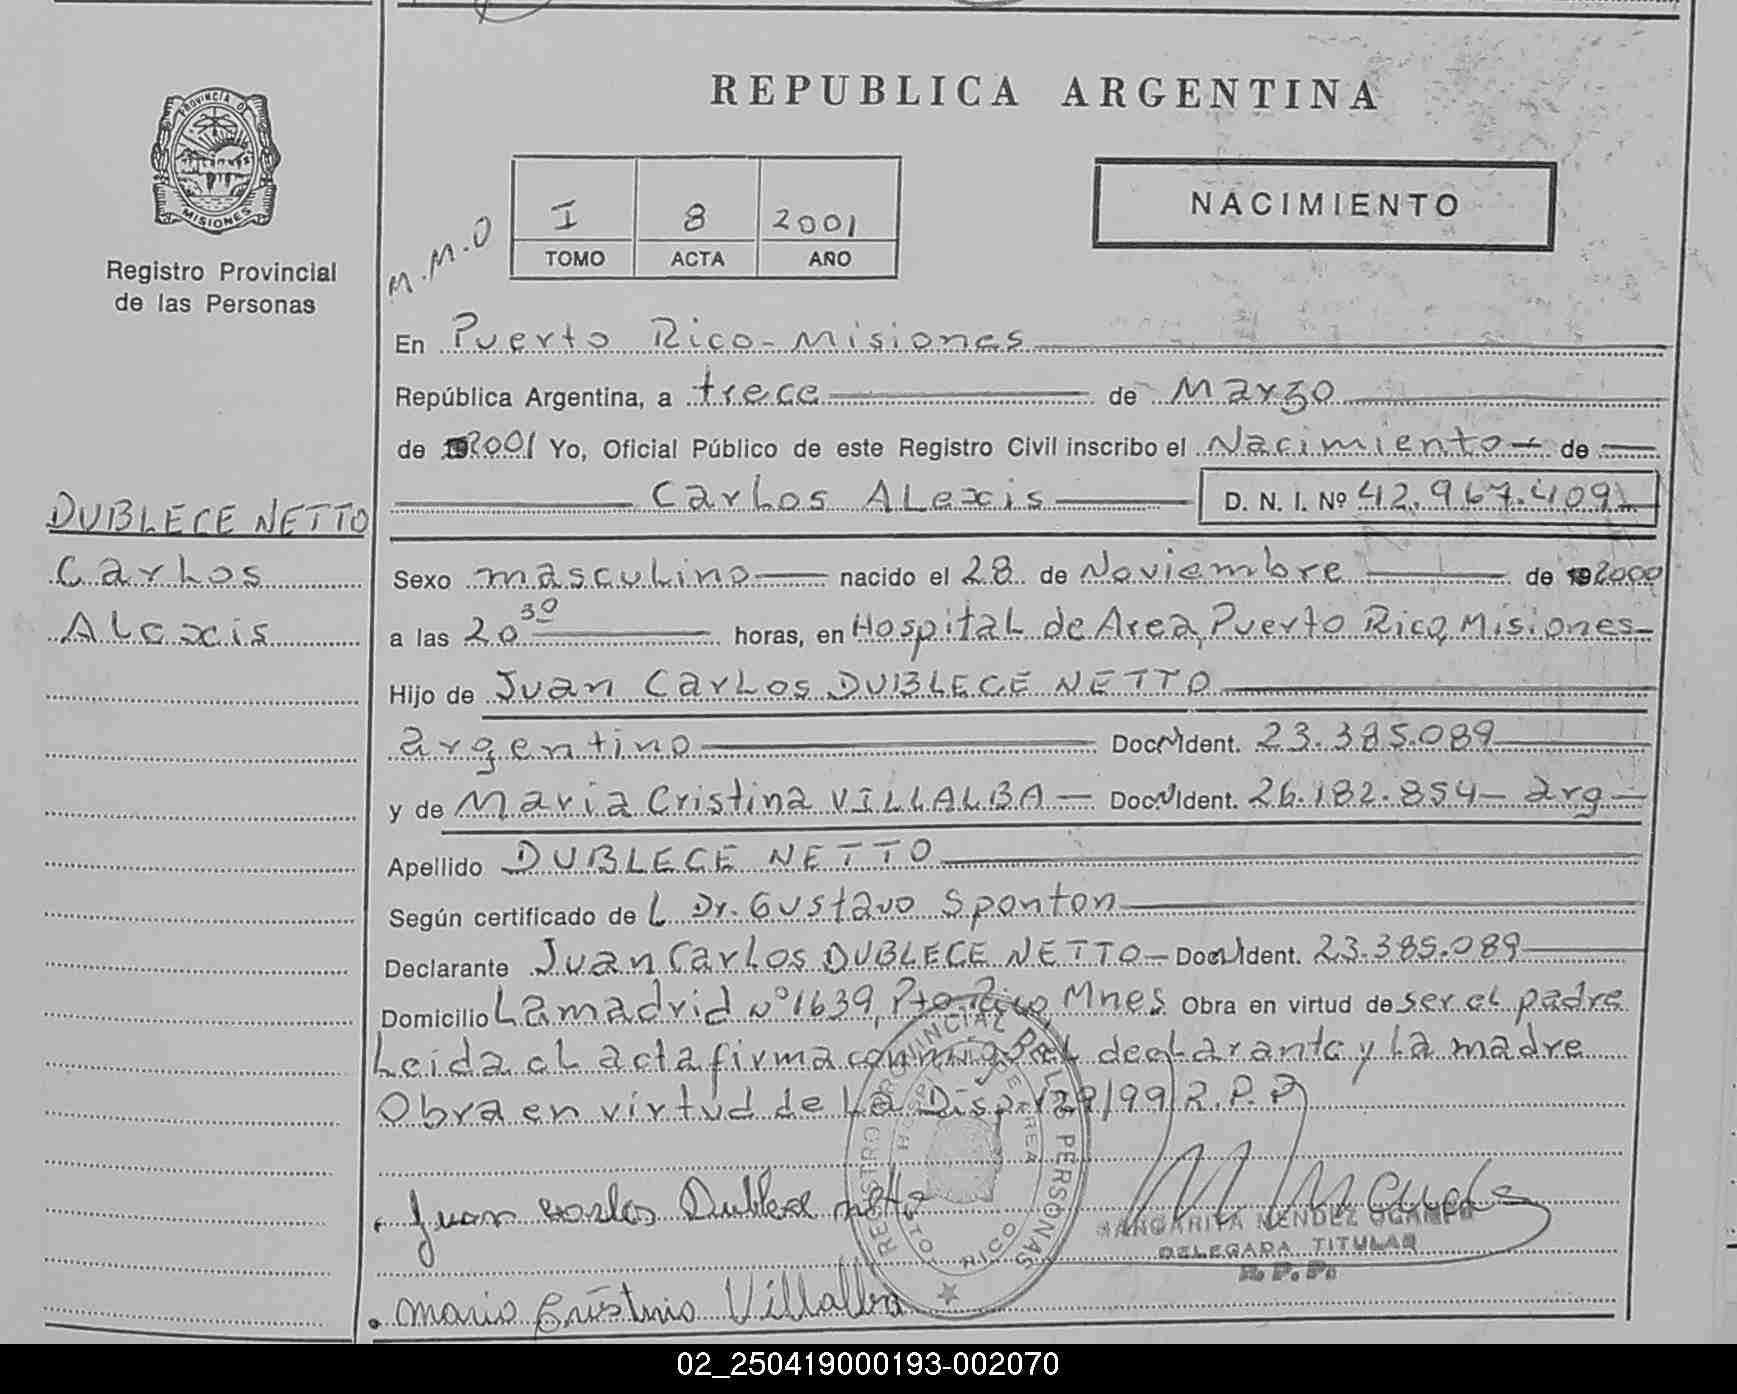 REPUBLICA ARGENTINA
PROVINCIA DE
MISIONES
Registro Provincial
de las Personas
M.M.O
I 8 2001
TOMO ACTA AÑO
NACIMIENTO
En Puerto Rico - Misiones
República Argentina, a trece de Marzo
de 2001 Yo, Oficial Público de este Registro Civil inscribo el Nacimiento de
Carlos ALexis D. N. I. Nº 42.967.409
DUBLECE NETTO
Carlos
ALexis
Sexo masculino nacido el 28 de Noviembre de 2000
a las 20 30 horas, en Hospital de Area, Puerto Rico, Misiones
Hijo de Juan Carlos DUBLECE NETTO
argentino Doc Ident. 23.385.089
y de Maria Cristina VILLALBA - Doc Ident. 26.182.854 - arg -
Apellido DUBLECE NETTO
Según certificado de L Dr. Gustavo Sponton
Declarante Juan Carlos DUBLECE NETTO - Doc Ident. 23.385.089
Domicilio Lamadrid Nº 1639, Pto. Rico, Mnes Obra en virtud de ser el padre
Leida el acta firma conmigo el declarante y la madre
Obra en virtud de La Disp. 129/99 R.P.P
REGISTRO PROVINCIAL DE L PERSONAS
PTO RICO
Juan Carlos Dublece netto
MARGARITA MENDEZ OCAMPO
DELEGADA TITULAR
R. P. P.
Maria Cristina Villalba
02_250419000193-002070